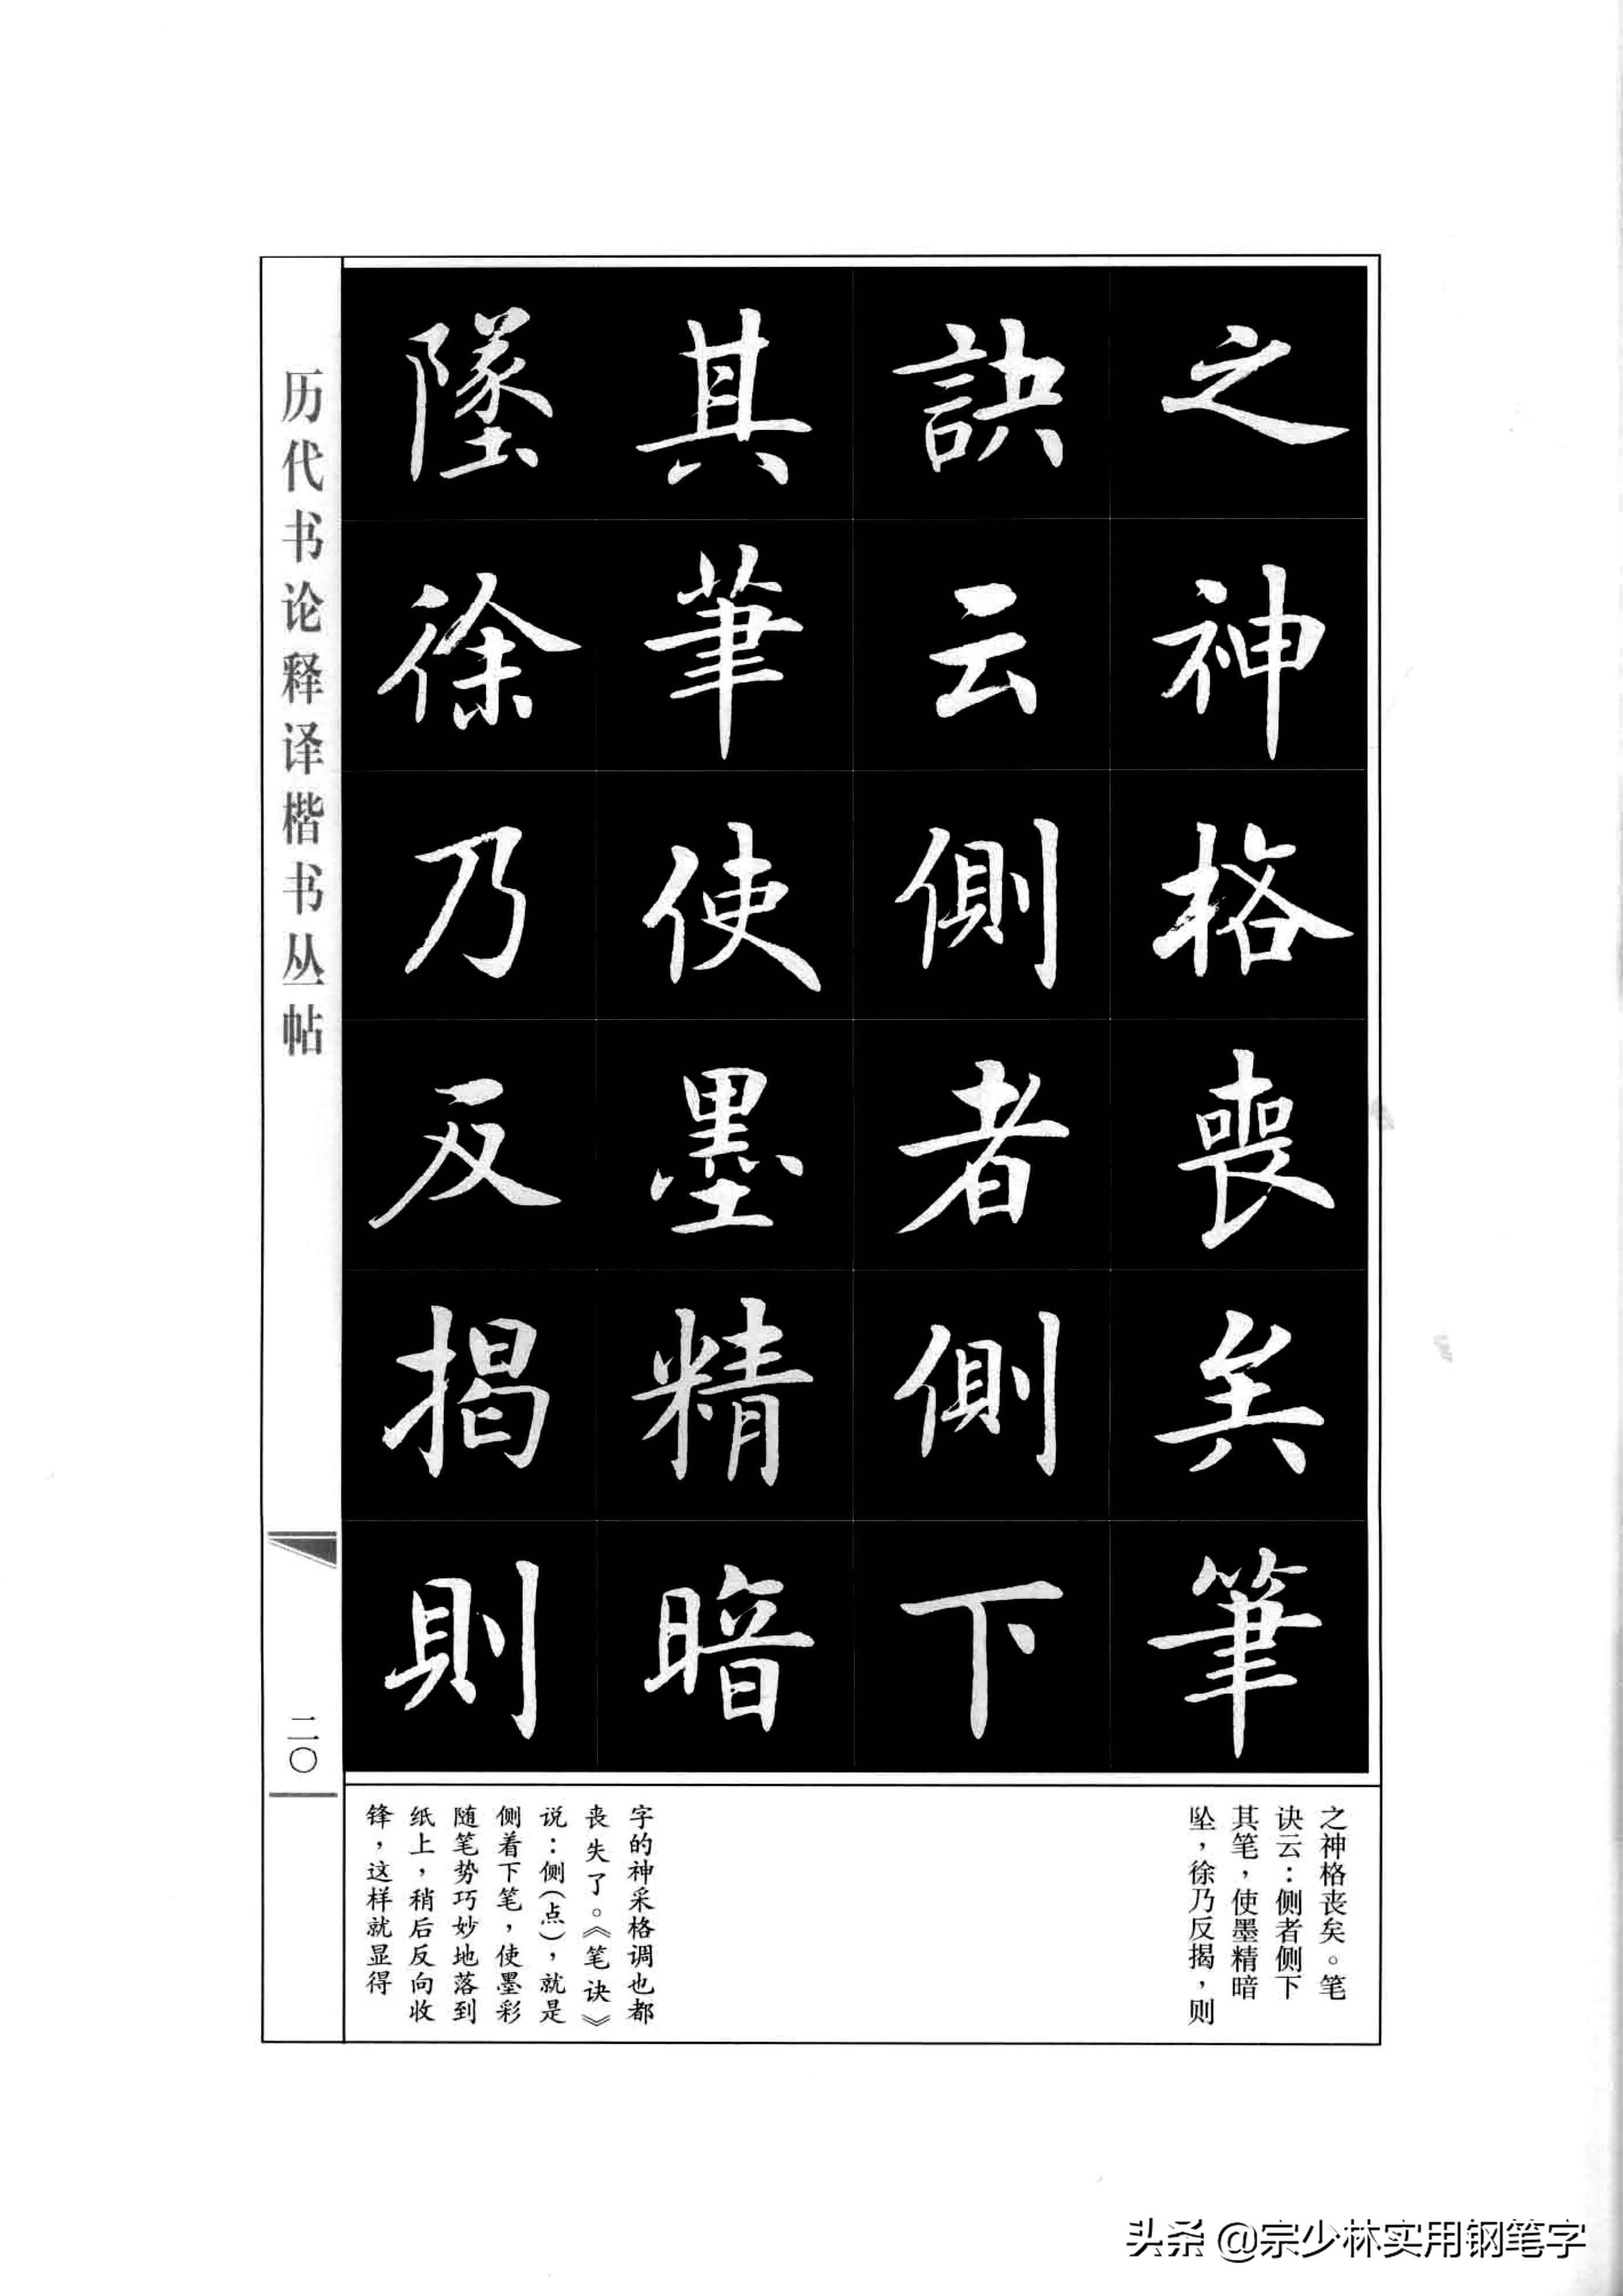 之神格喪矣筆
訣云側者側下
其筆使墨精暗
墜徐乃反揭則
历代书论释译楷书丛帖
二〇
之神格丧矣。笔
诀云：侧者侧下
其笔，使墨精暗
坠，徐乃反揭，则
字的神采格调也都
丧失了。《笔诀》
说：侧(点)，就是
侧着下笔，使墨彩
随笔势巧妙地落到
纸上，稍后反向收
锋，这样就显得
头条 @宗少林实用钢笔字